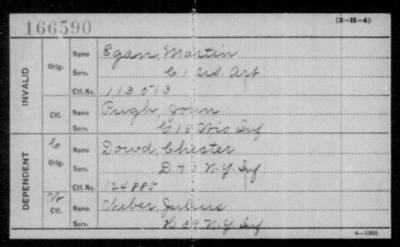 166590
(3-H-4)
INVALID
Orig.
Name Egan, Martin
Serv. C 1 U.S. Art
Ctf. No. 113 513
Ctf.
Name Pugh, John
Serv. G 15 Wis Inf
DEPENDENT
C
Orig.
Name Dowd, Chester
Serv. D 70 N.Y. Inf
Ctf. No. 124885
W
Ctf.
Name Weber, Julius
Serv. H 39 N.Y. Inf
6-1301